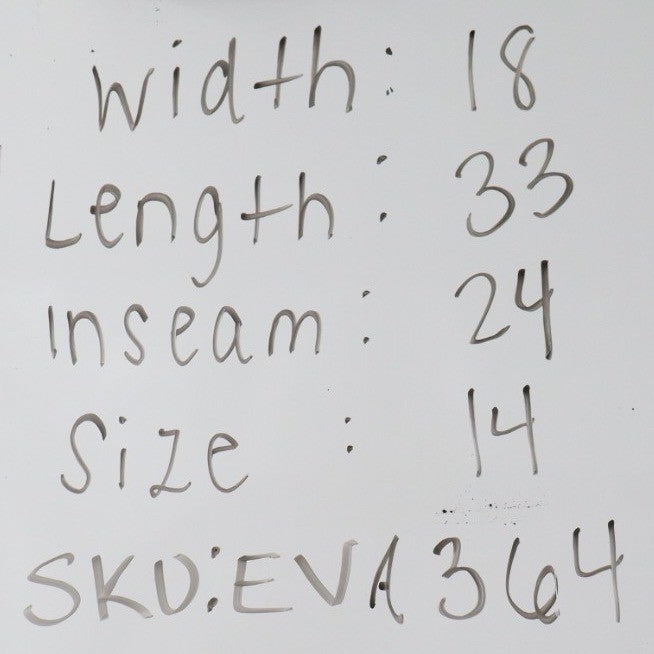 Width: 18
Length: 33
Inseam: 24
Size: 14
SKU:EVA364